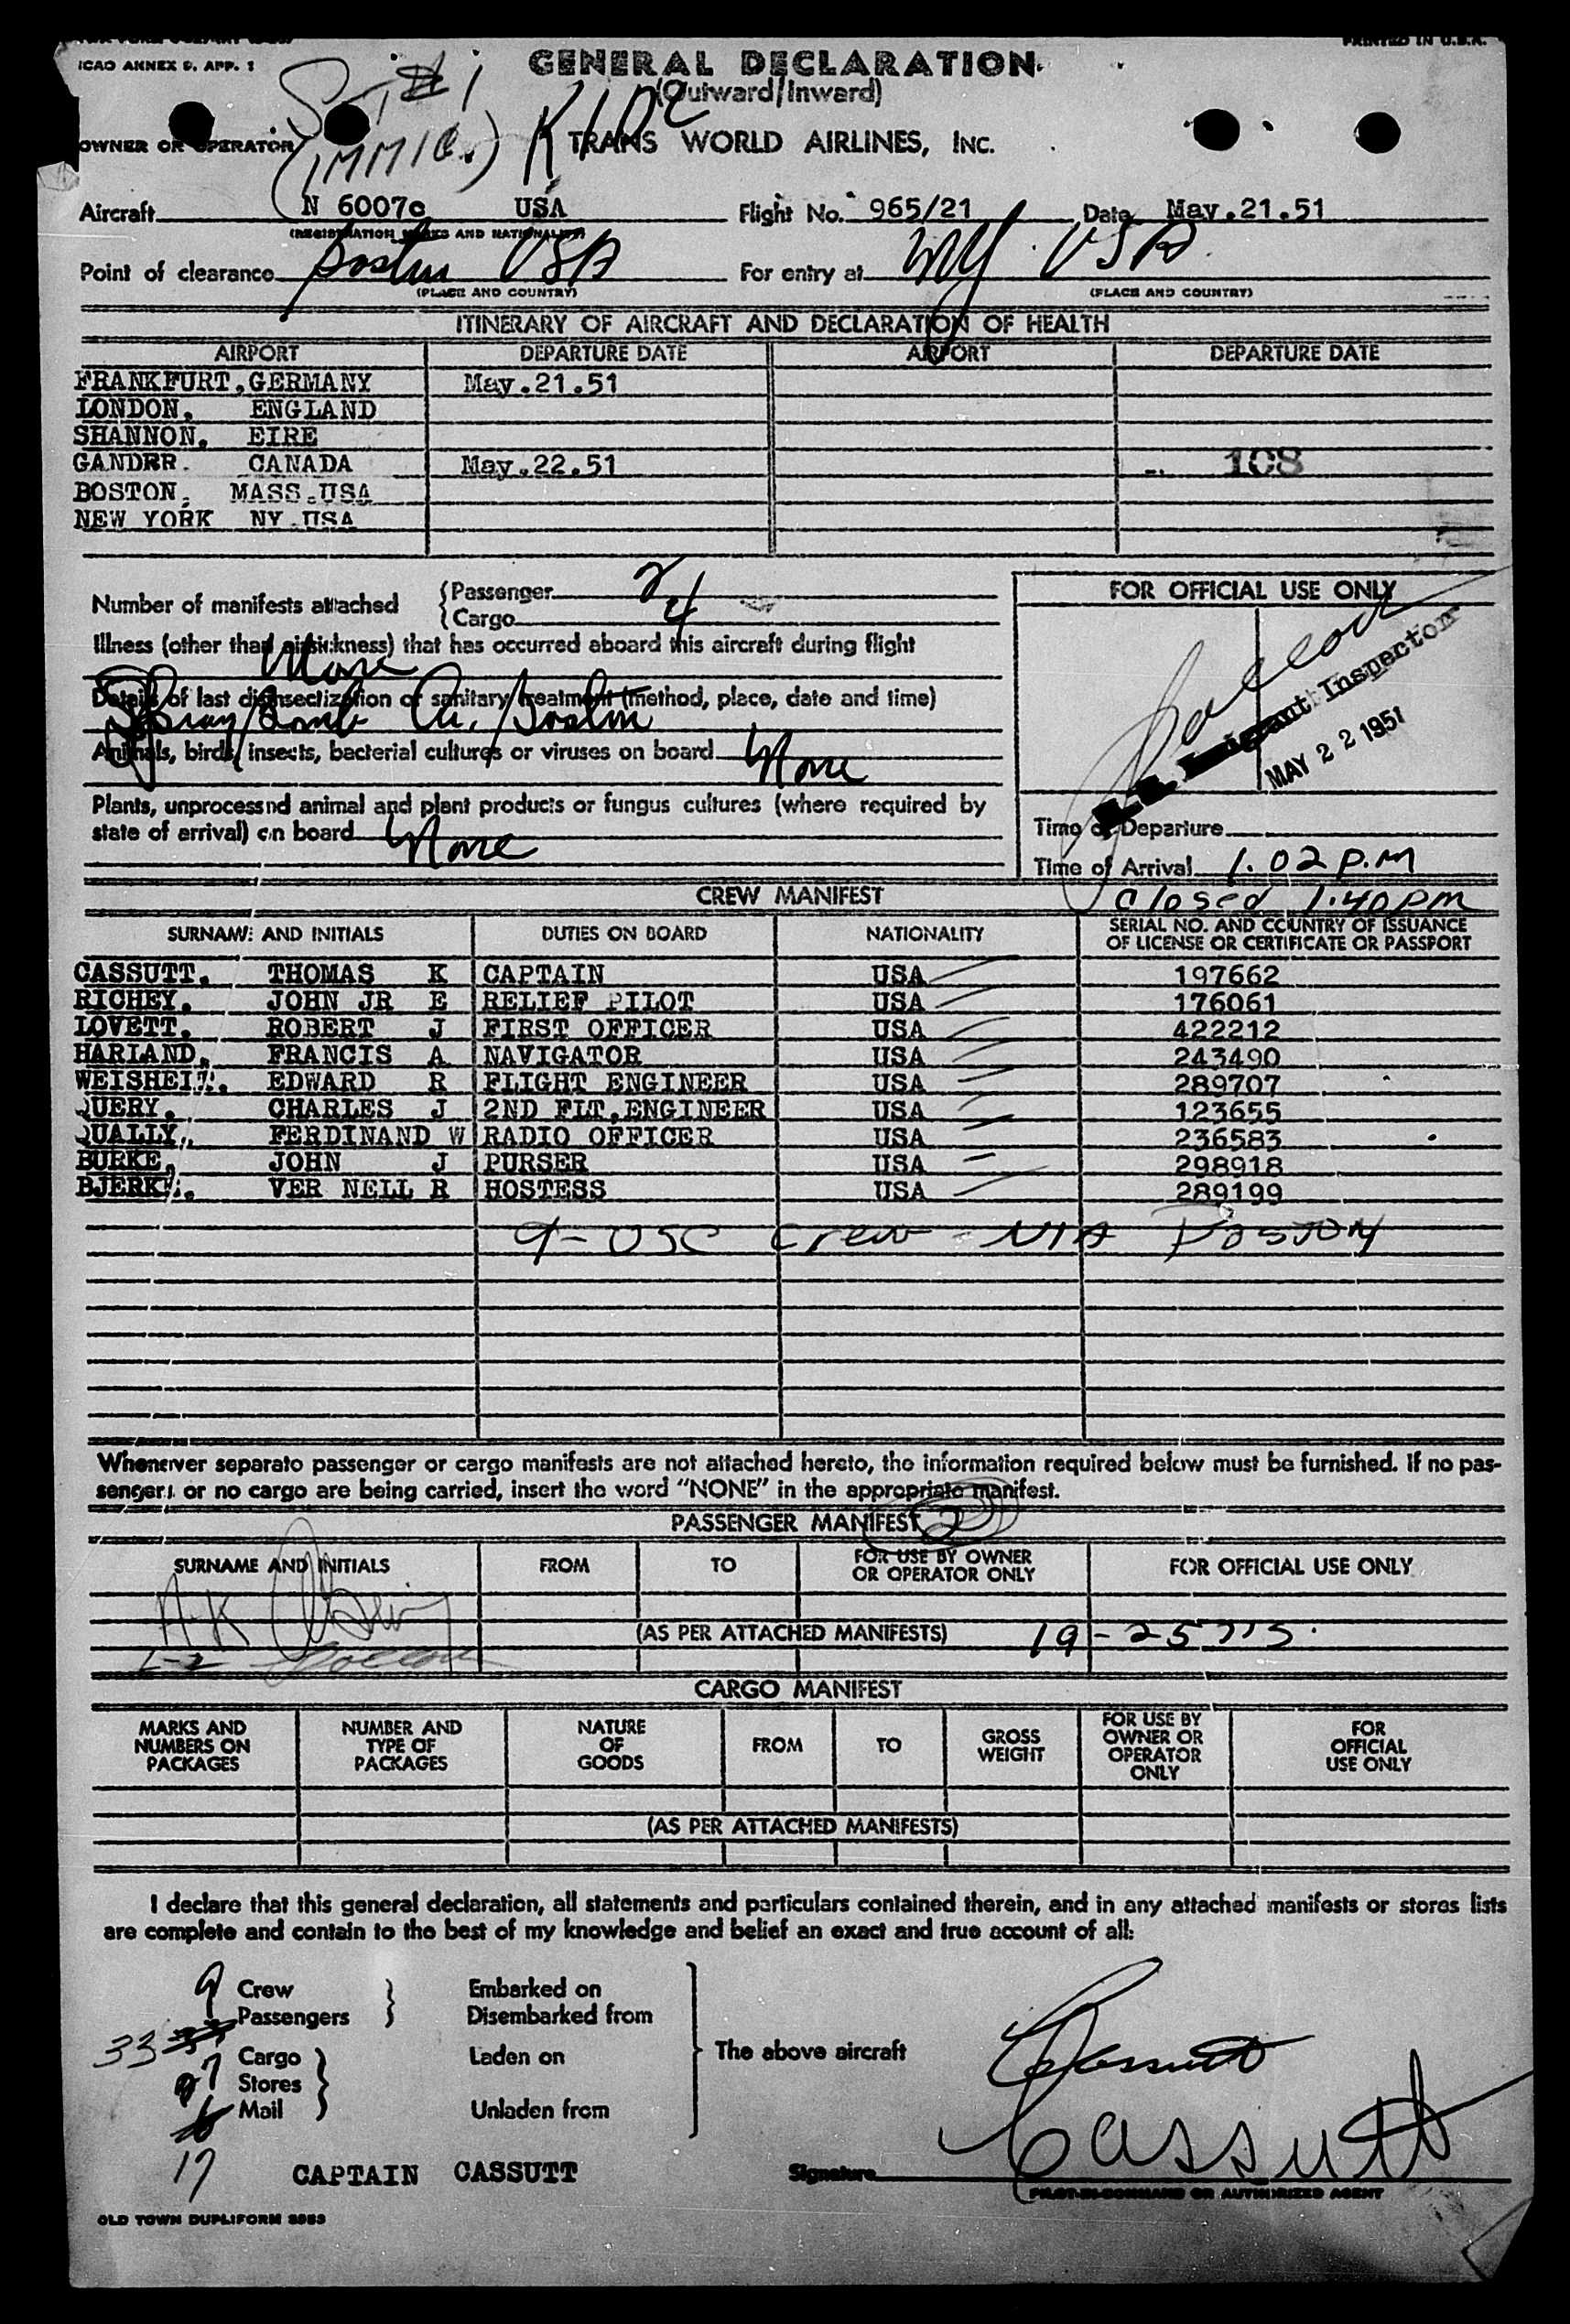 PRINTED IN U.S.A.
ICAO ANNEX 9. APP. 1
GENERAL DECLARATION
(Outward/Inward)
(IMMIG.)
OWNER OR OPERATOR
TRANS WORLD AIRLINES, INC.
Aircraft N 6007c USA Flight No. 965/21 Date May.21.51
(REGISTRATION MARKS AND NATIONALITY)
Point of clearance Boston USA For entry at NY. USA
(PLACE AND COUNTRY) (PLACE AND COUNTRY)
ITINERARY OF AIRCRAFT AND DECLARATION OF HEALTH
AIRPORT DEPARTURE DATE AIRPORT DEPARTURE DATE
FRANKFURT, GERMANY May.21.51
LONDON, ENGLAND
SHANNON, EIRE
GANDRR. CANADA May.22.51 108
BOSTON, MASS.USA
NEW YORK NY.USA
Number of manifests attached
Passenger 2
Cargo 4
FOR OFFICIAL USE ONLY
Illness (other than airsickness) that has occurred aboard this aircraft during flight
None
Details of last disinsectization or sanitary treatment (method, place, date and time)
Spray Bomb Ar. Boston
Animals, birds, insects, bacterial cultures or viruses on board None
Immigrant Inspector
MAY 22 1951
Plants, unprocessed animal and plant products or fungus cultures (where required by
state of arrival) on board None
Time of Departure
Time of Arrival 1.02 P.M
CREW MANIFEST
Closed 1.40 pm
SURNAME AND INITIALS DUTIES ON BOARD NATIONALITY SERIAL NO. AND COUNTRY OF ISSUANCE
OF LICENSE OR CERTIFICATE OR PASSPORT
CASSUTT. THOMAS K CAPTAIN USA 197662
RICHEY. JOHN JR E RELIEF PILOT USA 176061
LOVETT. ROBERT J FIRST OFFICER USA 422212
HARLAND. FRANCIS A NAVIGATOR USA 243490
WEISHEIT. EDWARD R FLIGHT ENGINEER USA 289707
QUERY. CHARLES J 2ND FLT.ENGINEER USA 123655
QUALLY, FERDINAND W RADIO OFFICER USA 236583
BURKE, JOHN J PURSER USA 298918
BJERKE. VER NELL R HOSTESS USA 289199
9 - USC Crew - VIA BOSTON
Whenever separate passenger or cargo manifests are not attached hereto, the information required below must be furnished. If no pas-
sengers or no cargo are being carried, insert the word "NONE" in the appropriate manifest.
PASSENGER MANIFEST 2
SURNAME AND INITIALS FROM TO FOR USE BY OWNER
OR OPERATOR ONLY FOR OFFICIAL USE ONLY
(AS PER ATTACHED MANIFESTS)
CARGO MANIFEST
MARKS AND
NUMBERS ON
PACKAGES NUMBER AND
TYPE OF
PACKAGES NATURE
OF
GOODS FROM TO GROSS
WEIGHT FOR USE BY
OWNER OR
OPERATOR
ONLY FOR
OFFICIAL
USE ONLY
(AS PER ATTACHED MANIFESTS)
I declare that this general declaration, all statements and particulars contained therein, and in any attached manifests or stores lists
are complete and contain to the best of my knowledge and belief an exact and true account of all:
9 Crew Embarked on
33 Passengers Disembarked from
Cargo Laden on The above aircraft Cassutt
Stores
Mail Unladen from
17
CAPTAIN CASSUTT Signature Cassutt
PILOT-IN-COMMAND OR AUTHORIZED AGENT
OLD TOWN DUPLIFORM